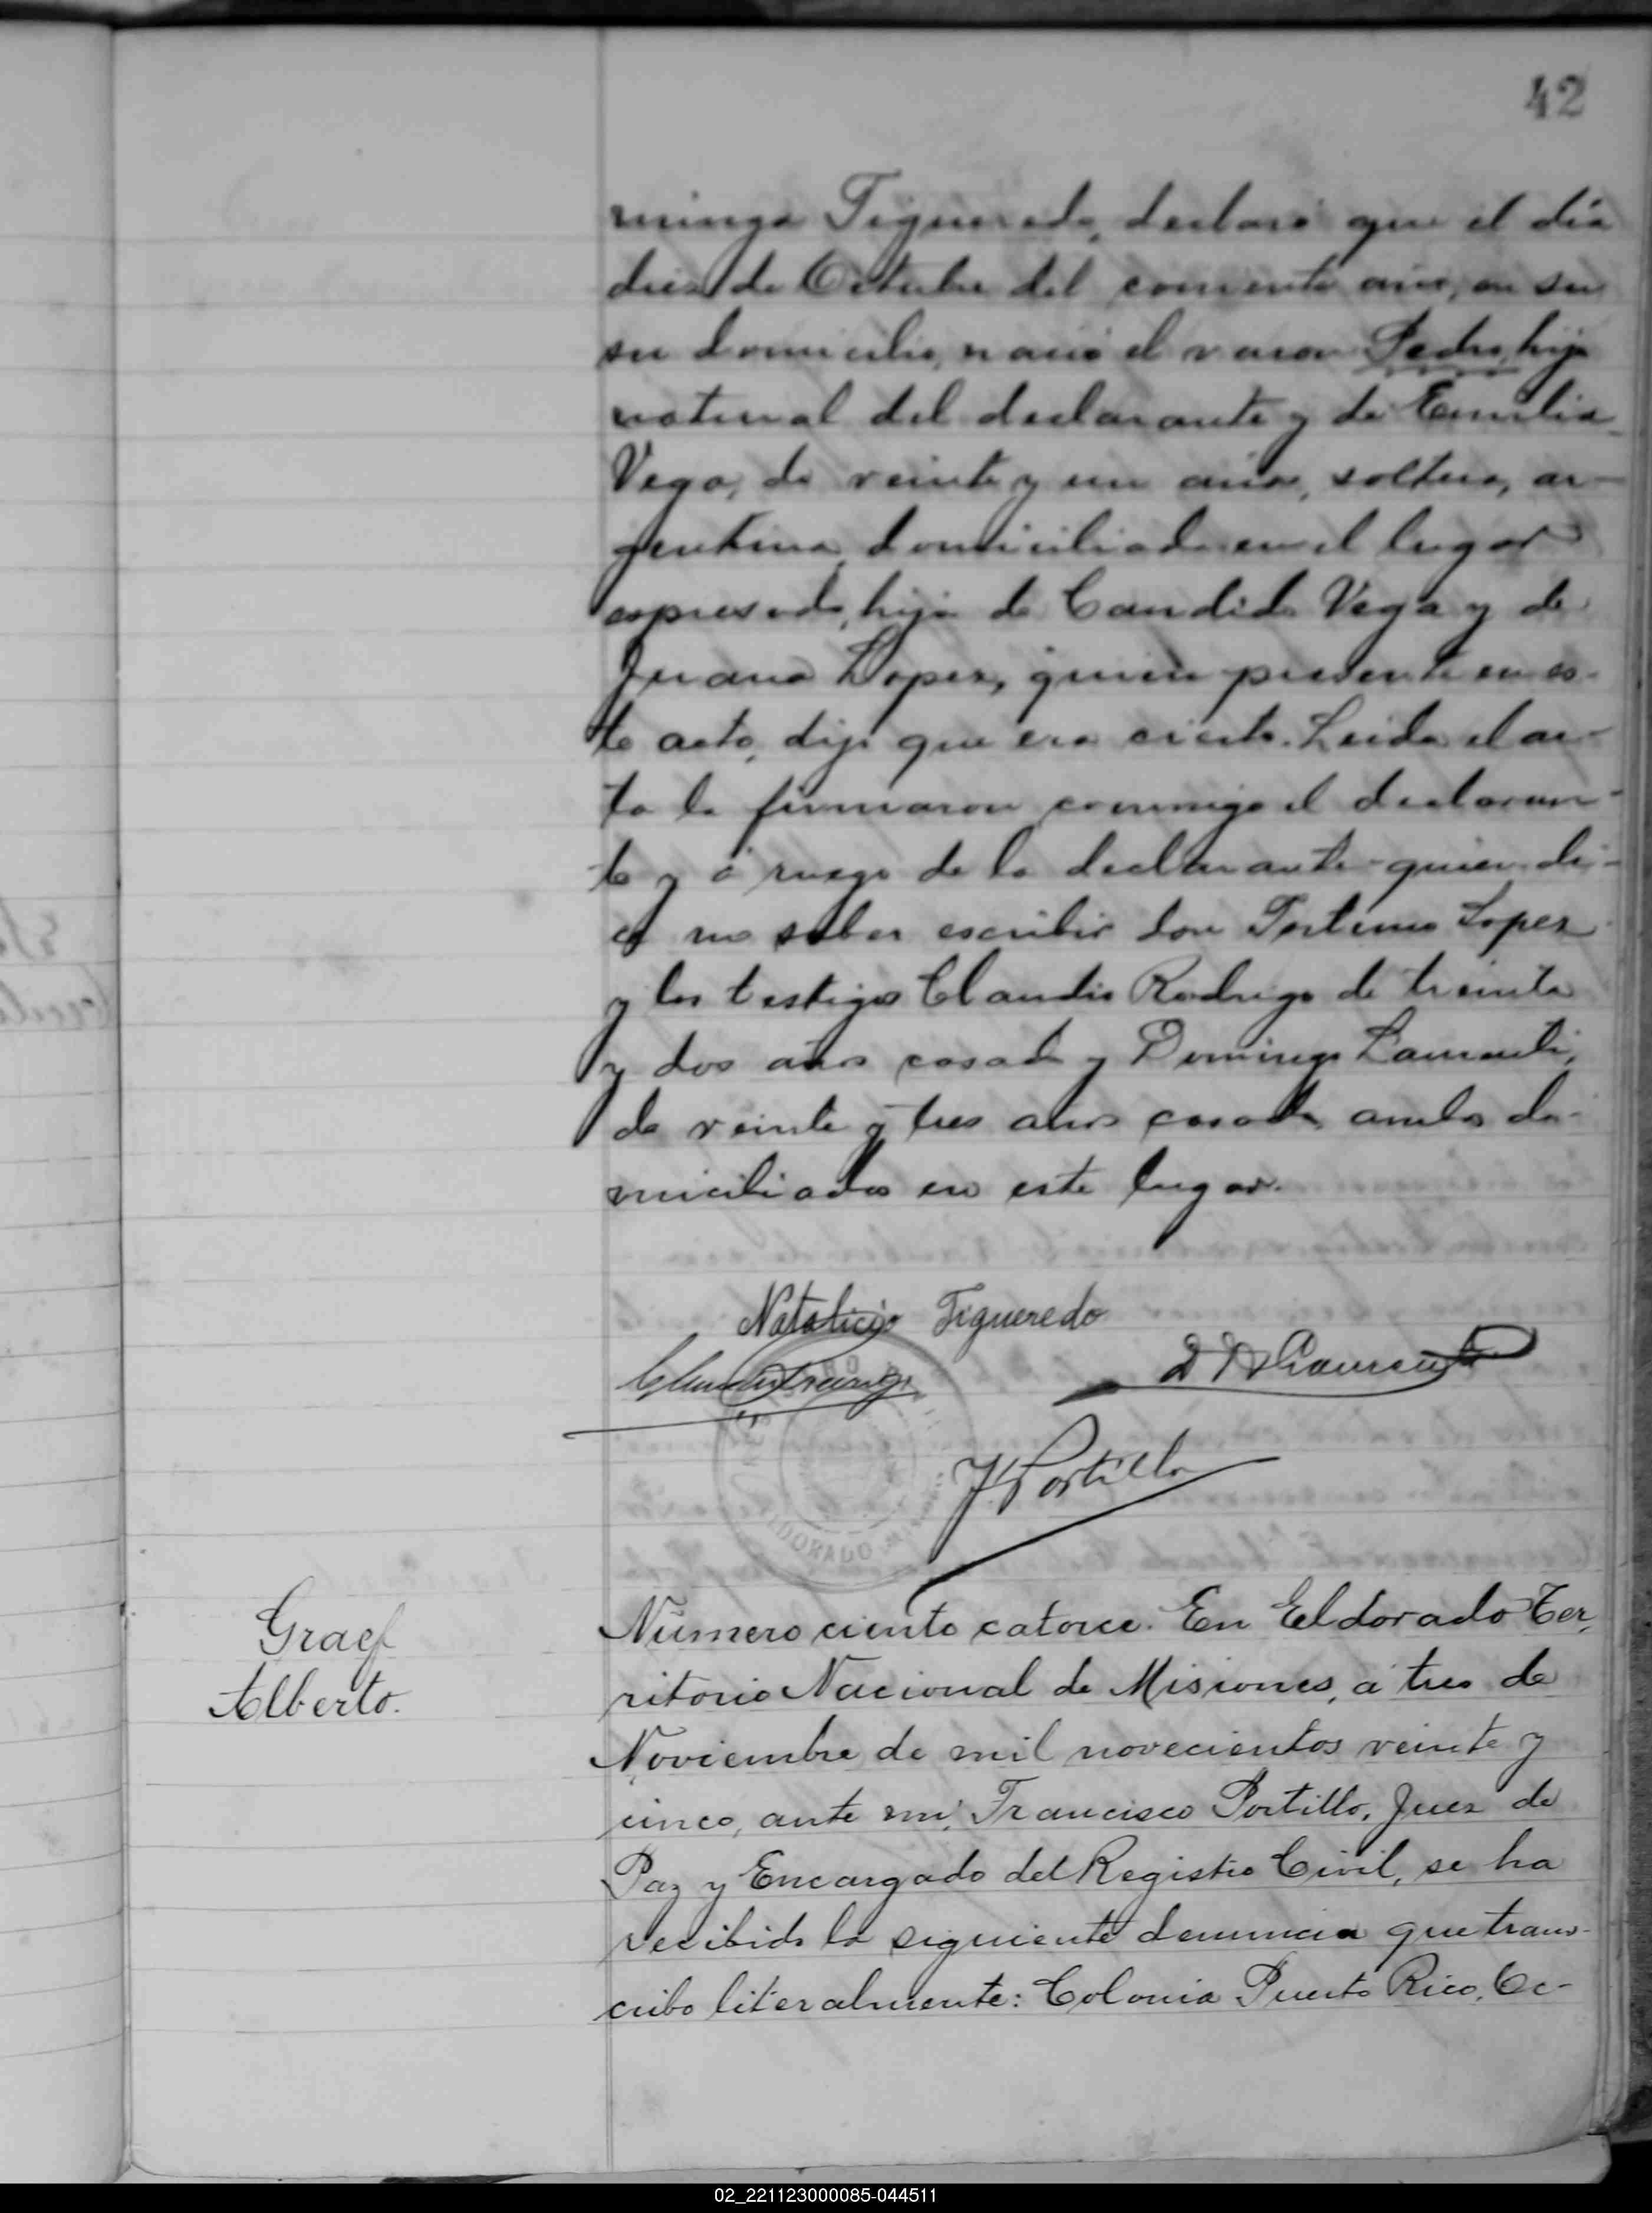 42
minga Figueredo, declaró que el dia
diez de Octubre del corriente año, en su
su domicilio, nació el varon Pedro, hijo
natural del declarante y de Emilia
Vega, de veinte y un años, soltera, ar-
gentina, domiciliada en el lugar
espresado, hija de Candido Vega y de
Juana Lopez, quien presente en es-
te acto, dijo que era cierto. Leida el ac-
ta la firmaron conmigo el declaran-
te y á ruego de la declarante quien di-
ce no saber escribir don Lopez
y los testigos Claudio Rodrigo de treinta
y dos años casado y Domingo Laurenti,
de veinte y tres años casado, ambos do-
miciliados en este lugar.
Natalicio Figueredo
J. Portillo
ELDORADO
Graef
Alberto.
Número ciento catorce. En Eldorado Ter,
ritorio Nacional de Misiones, á tres de
Noviembre de mil novecientos veinte y
cinco, ante mi, Francisco Portillo, Juez de
Paz y Encargado del Registro Civil, se ha
recibido la siguiente denuncia que trans-
cribo literalmente: Colonia Puerto Rico, Oc-
02_221123000085-044511